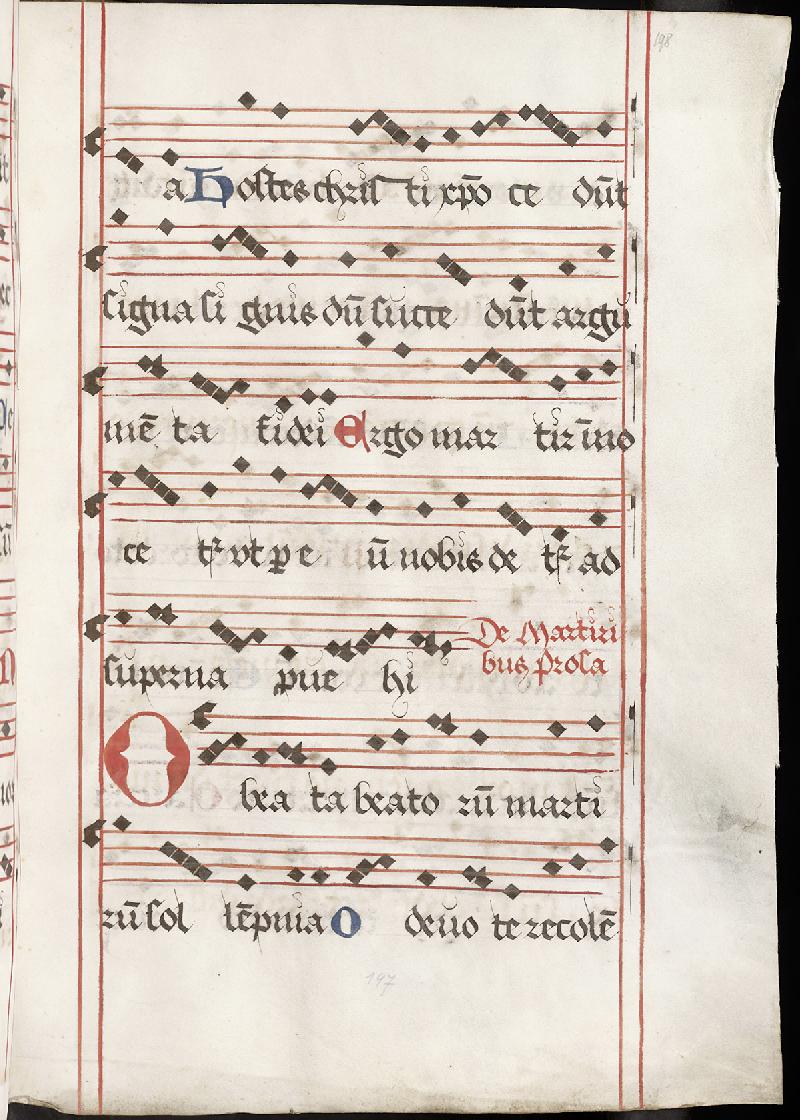 198
a Hostes chris ti xp̄o ce dūt
signa si gnis dū succe dūt argu
mē ta fidei Ergo mar tir īno
ce tꝛ vt ꝑ e ū nobis de tꝛ ad
superna ꝑue hi
De Martiri
bus prosa
O bea ta beato rū marti
rū sol lēpnia O deuo te recolē
197